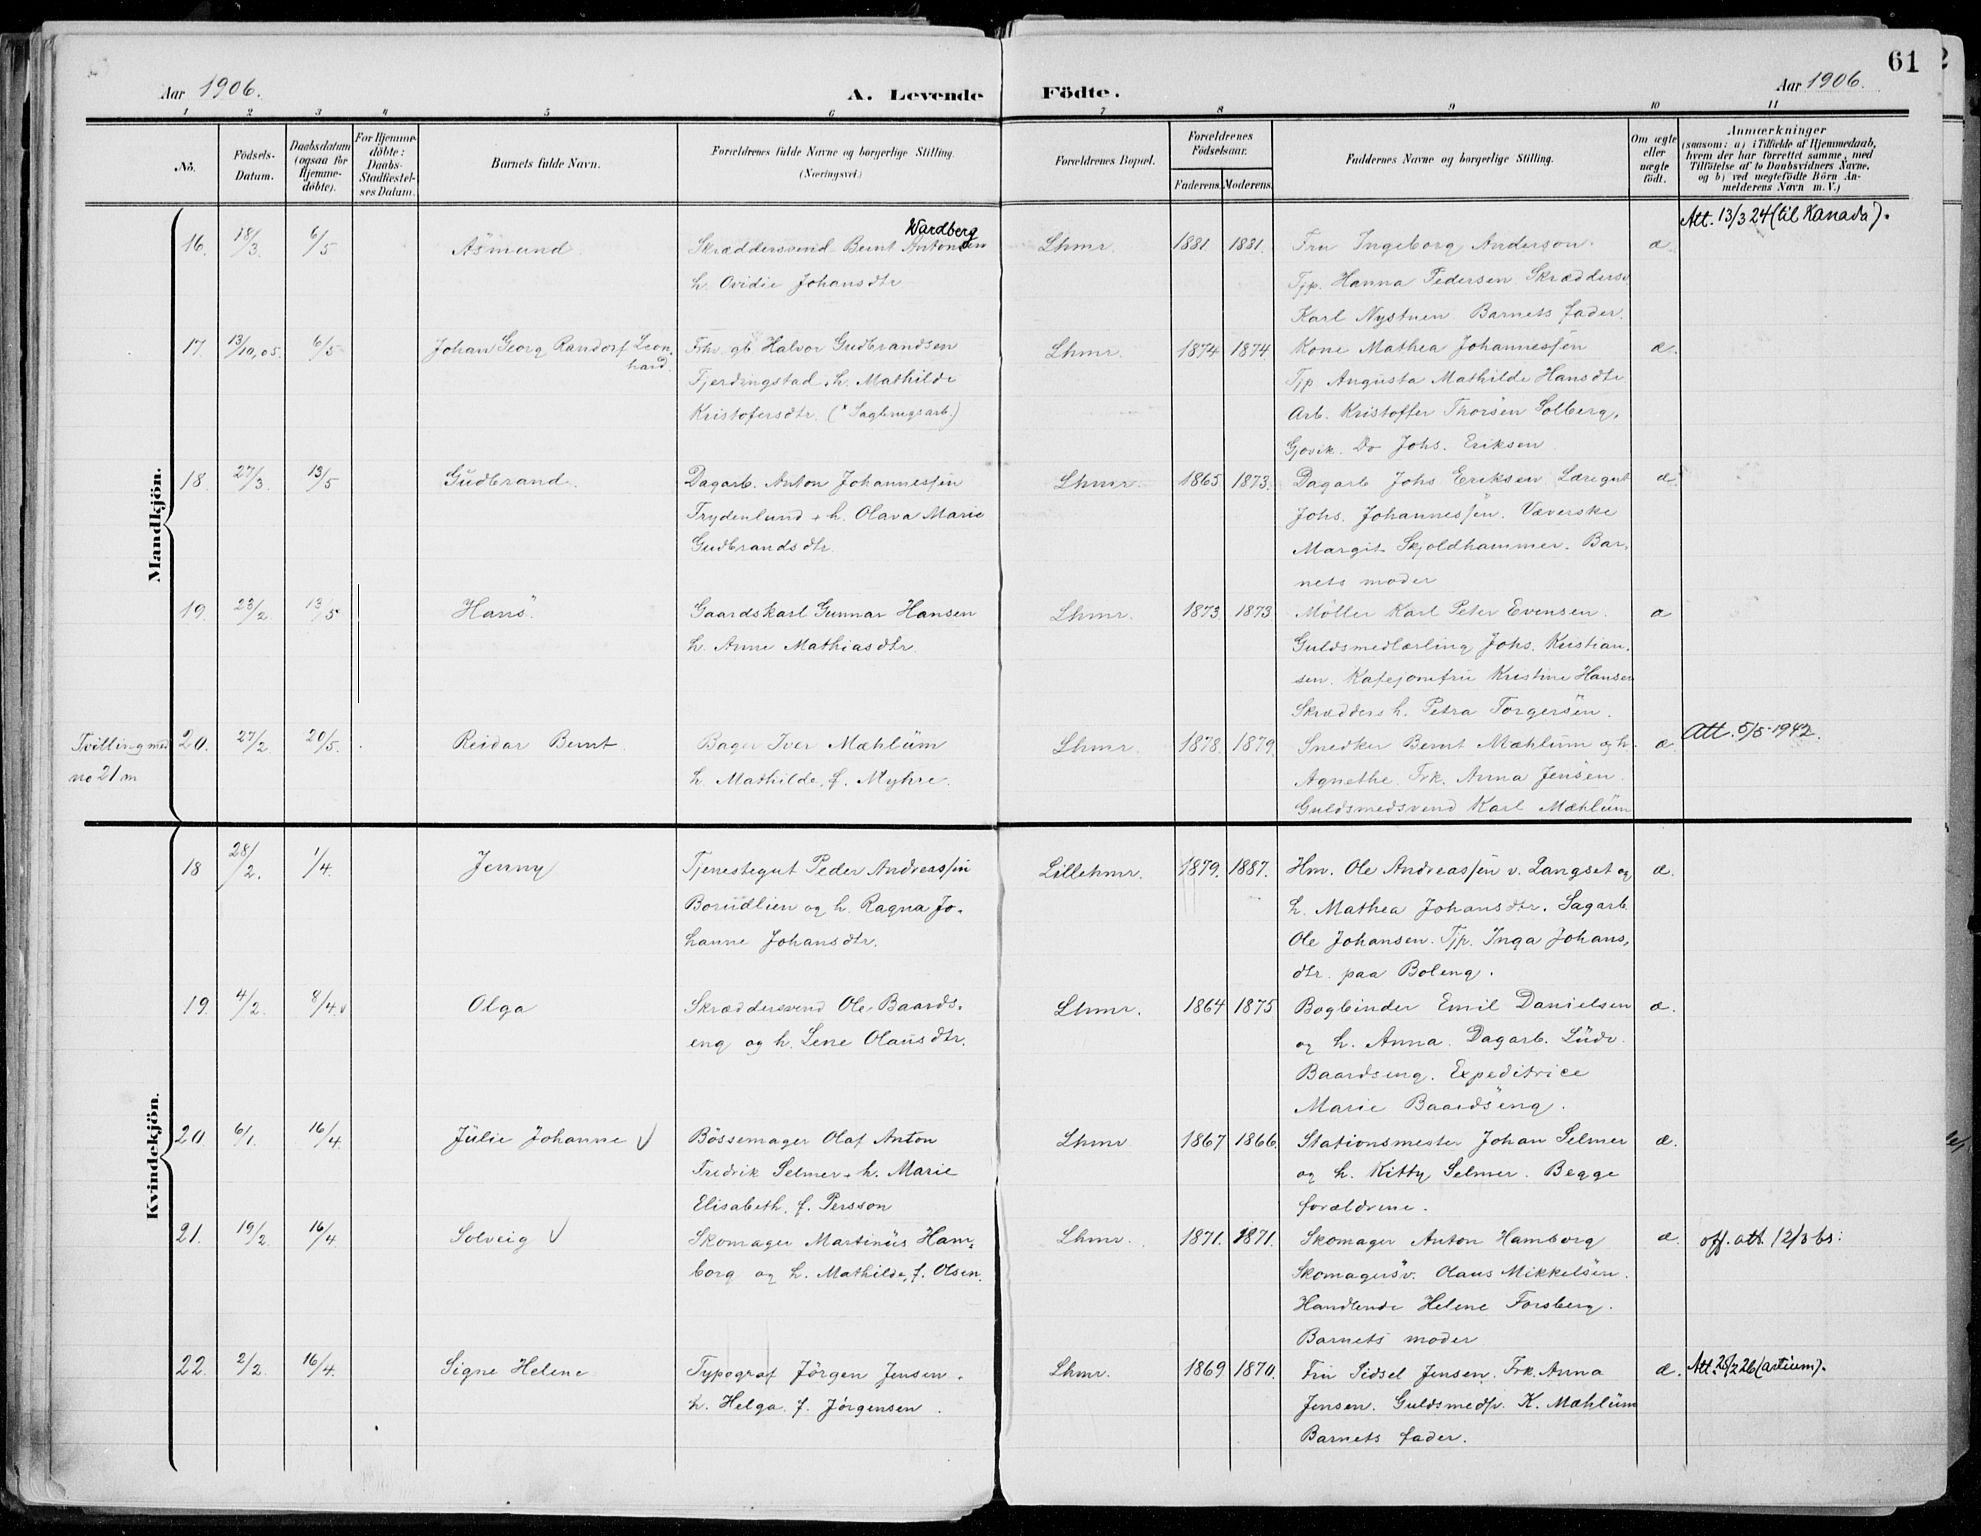 61
Aar 1906.
A. Levende Födte.
Aar 1906.
1 2 3 4 5 6 7 8 9 10 11
No.
Födsels-Datum.
Daabsdatum (ogsaa for Hjemme-döbte).
For Hjemme-döbte: Daabs-Stadfæstel-ses Datum.
Barnets fulde Navn.
Forældrenes fulde Navne og borgerlige Stilling.
(Næringsvei.)
Forældrenes Bopæl.
Forældrenes Födselsaar.
Faderens. Moderens.
Faddernes Navne og borgerlige Stilling.
Om ægte eller uægte födt.
Anmærkninger
(saasom: a) i Tilfælde af Hjemmedaab,
hvem der har forrettet samme, med
Tilföielse af to Daabsvidners Navne,
og b) ved uægtefödte Börn An-
melderens Navn m. V.)
Mandkjön.
Att. 13/3 24 (til Kanada).
Wardberg
16. 18/3. 6/5 Åsmund. Skræddersvend Bernt Antonsen Lhmr. 1881. 1881. Fru Ingeborg Anderson. æ.
h. Ovidie Johansdtr Tjp. Hanna Pedersen Skrædders.
Karl Nystuen Barnets fader.
17. 13/10,05. 6/5 Johan Georg Randorf Leon- Fhv. gb. Halvor Gudbrandsen Lhmr. 1874 1874. Kone Mathea Johannessen æ.
hard. Fjerdingstad, h. Mathilde Tjp. Augusta Mathilde Hansdtr
Kristofersdtr. (* Sagbrugsarb.) Arb. Kristoffer Thorsen Solberg,
Gjøvik. Do Johs. Eriksen
18. 27/3. 13/5 Gudbrand. Dagarb. Anton Johannessen Lhmr. 1865 1873. Dagarb Johs Eriksen Læregut æ.
Trydenlund + h. Olava Marie Johs. Johannessen. Væverske
Gudbrandsdtr. Margit Skjoldhammer. Bar-
nets moder
19. 23/2. 13/5 Hans. Gaardskarl Gunnar Hansen Lhmr. 1873 1873 Möller Karl Peter Evensen. æ
h. Anne Mathiasdtr. Guldsmedlærling Johs. Kristian-
sen. Kafejomfru Kristine Hansen
Skrædders h. Petra Torgersen.
Tvilling med 20. 27/2. 20/5. Reidar Bernt. Bager Iver Mæhlum Lhmr. 1878. 1879. Snedker Bernt Mæhlum og h. æ. Att. 5/5-1942.
no 21 m h. Mathilde, f. Myhre. Agnethe. Frk. Anna Jensen.
Guldsmedsvend Karl Mæhlum
Kvindekjön.
18 28/2. 1/4. Jenny Tjenestegut Peder Andreassen Lillehmr. 1879. 1887. Hm. Ole Andreassen v. Langset og æ.
Borudlien og h. Ragna Jo- h. Mathea Johansdtr. Sagarb.
hanne Johansdtr. Ole Johansen. Tjp. Inga Johans-
dtr. paa Boleng.
19. 4/2. 8/4. v Olga Skræddersvend Ole Baards- Lhmr. 1864 1875 Bogbinder Emil Danielsen æ.
eng og h. Lene Olausdtr. og h. Anna. Dagarb. Ludv.
Baardseng. Expeditrice
Marie Baardseng.
20. 6/1. 16/4. Julie Johanne V Bössemager Olaf Anton Lhmr. 1867 1866. Stationsmester Johan Selmer æ.
Fredrik Selmer + h. Marie og h. Kitty Selmer. Begge
Elisabeth, f. Persson forældrene.
21. 19/2. 16/4. Solveig V Skomager Martinus Ham- Lhmr. 1871. 1871. Skomager Anton Hamborg æ. off. att. 12/3 65:
borg og h. Mathilde, f. Olsen. Skomagersv. Olaus Mikkelsen.
Handlende Helene Forsberg.
Barnets moder
22. 2/2. 16/4. Signe Helene Typograf Jörgen Jensen. Lhmr. 1869 1870. Fru Sidsel Jensen. Frk. Anna æ. Att. 25/2 26 (artium).
h. Helga f. Jørgensen. Jensen. Guldsmedsv. K. Mæhlum
Barnets fader.